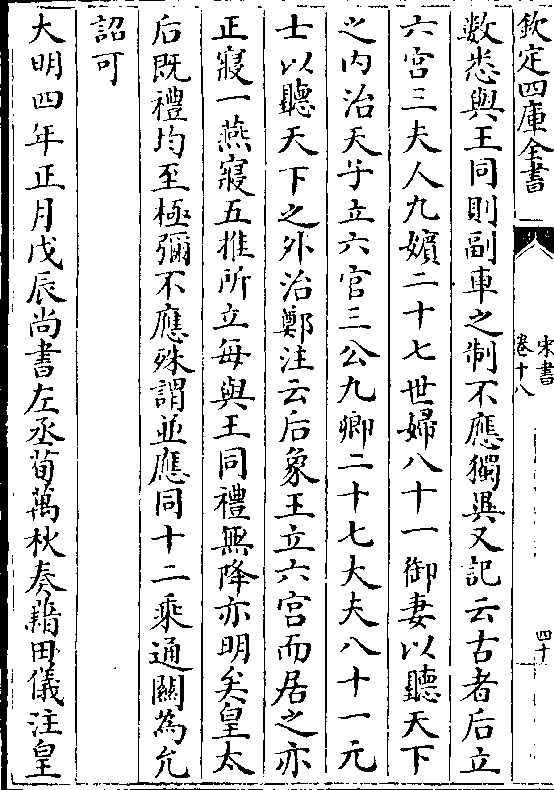 欽定四庫全書
宋書
卷十八
四十
數悉與王同則副車之制不應獨異又記云古者后立
六宮三夫人九嬪二十七世婦八十一御妻以聽天下
之内治天子立六官三公九卿二十七大夫八十一元
士以聽天下之外治鄭注云后象王立六宮而居之亦
正寢一燕寢五推所立每與王同禮無降亦明矣皇太
后既禮均至極彌不應殊謂並應同十二乘通關為允
詔可
大明四年正月戊辰尚書左丞荀萬秋奏藉田儀注皇